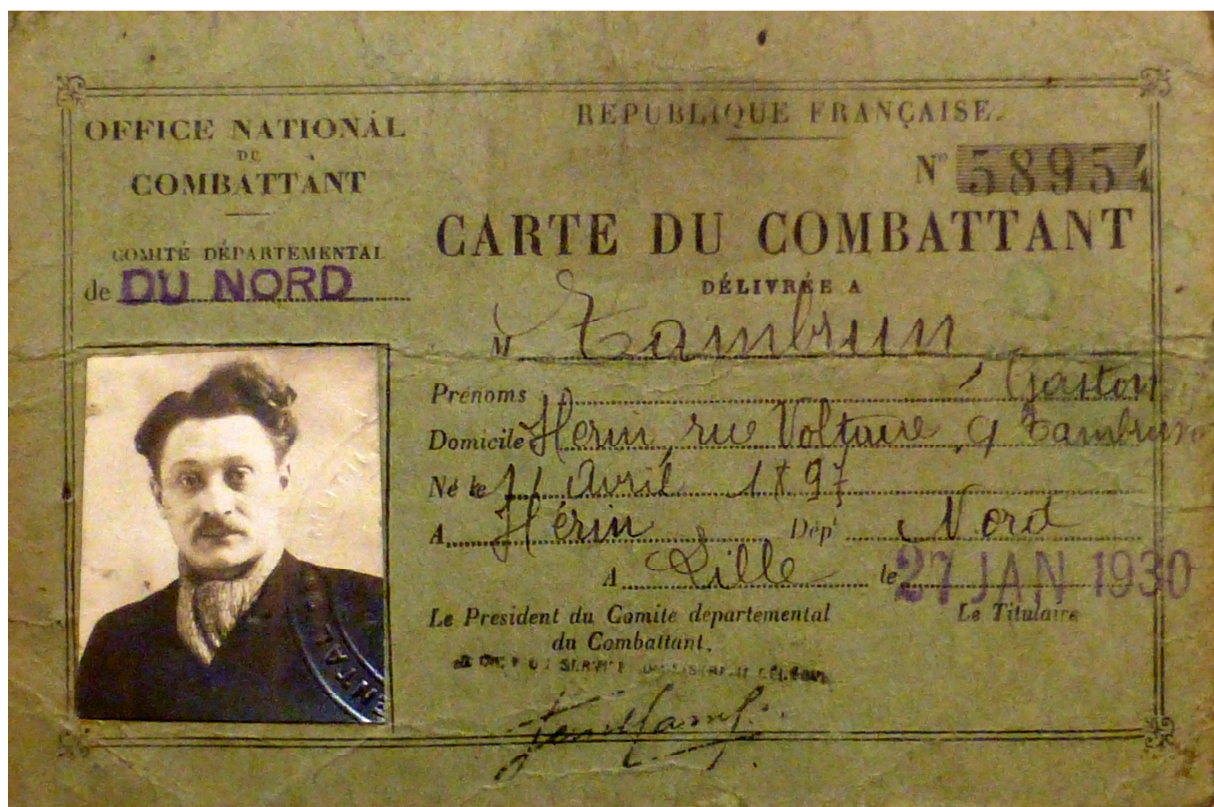 OFFICE NATIONAL
DU
COMBATTANT
COMITÉ DÉPARTEMENTAL
de DU NORD
RÉPUBLIQUE FRANÇAISE.
N° 58954
CARTE DU COMBATTANT
DÉLIVRÉE A
M Tambrun
Prénoms Gaston
Domicile Herin, rue Voltaire, 9 Tambrun
Né le 11 Avril 1897
A Hérin Dépt Nord
A Lille le 27 JAN 1930
Le President du Comité departemental
du Combattant,
Le Titulaire
NTAL